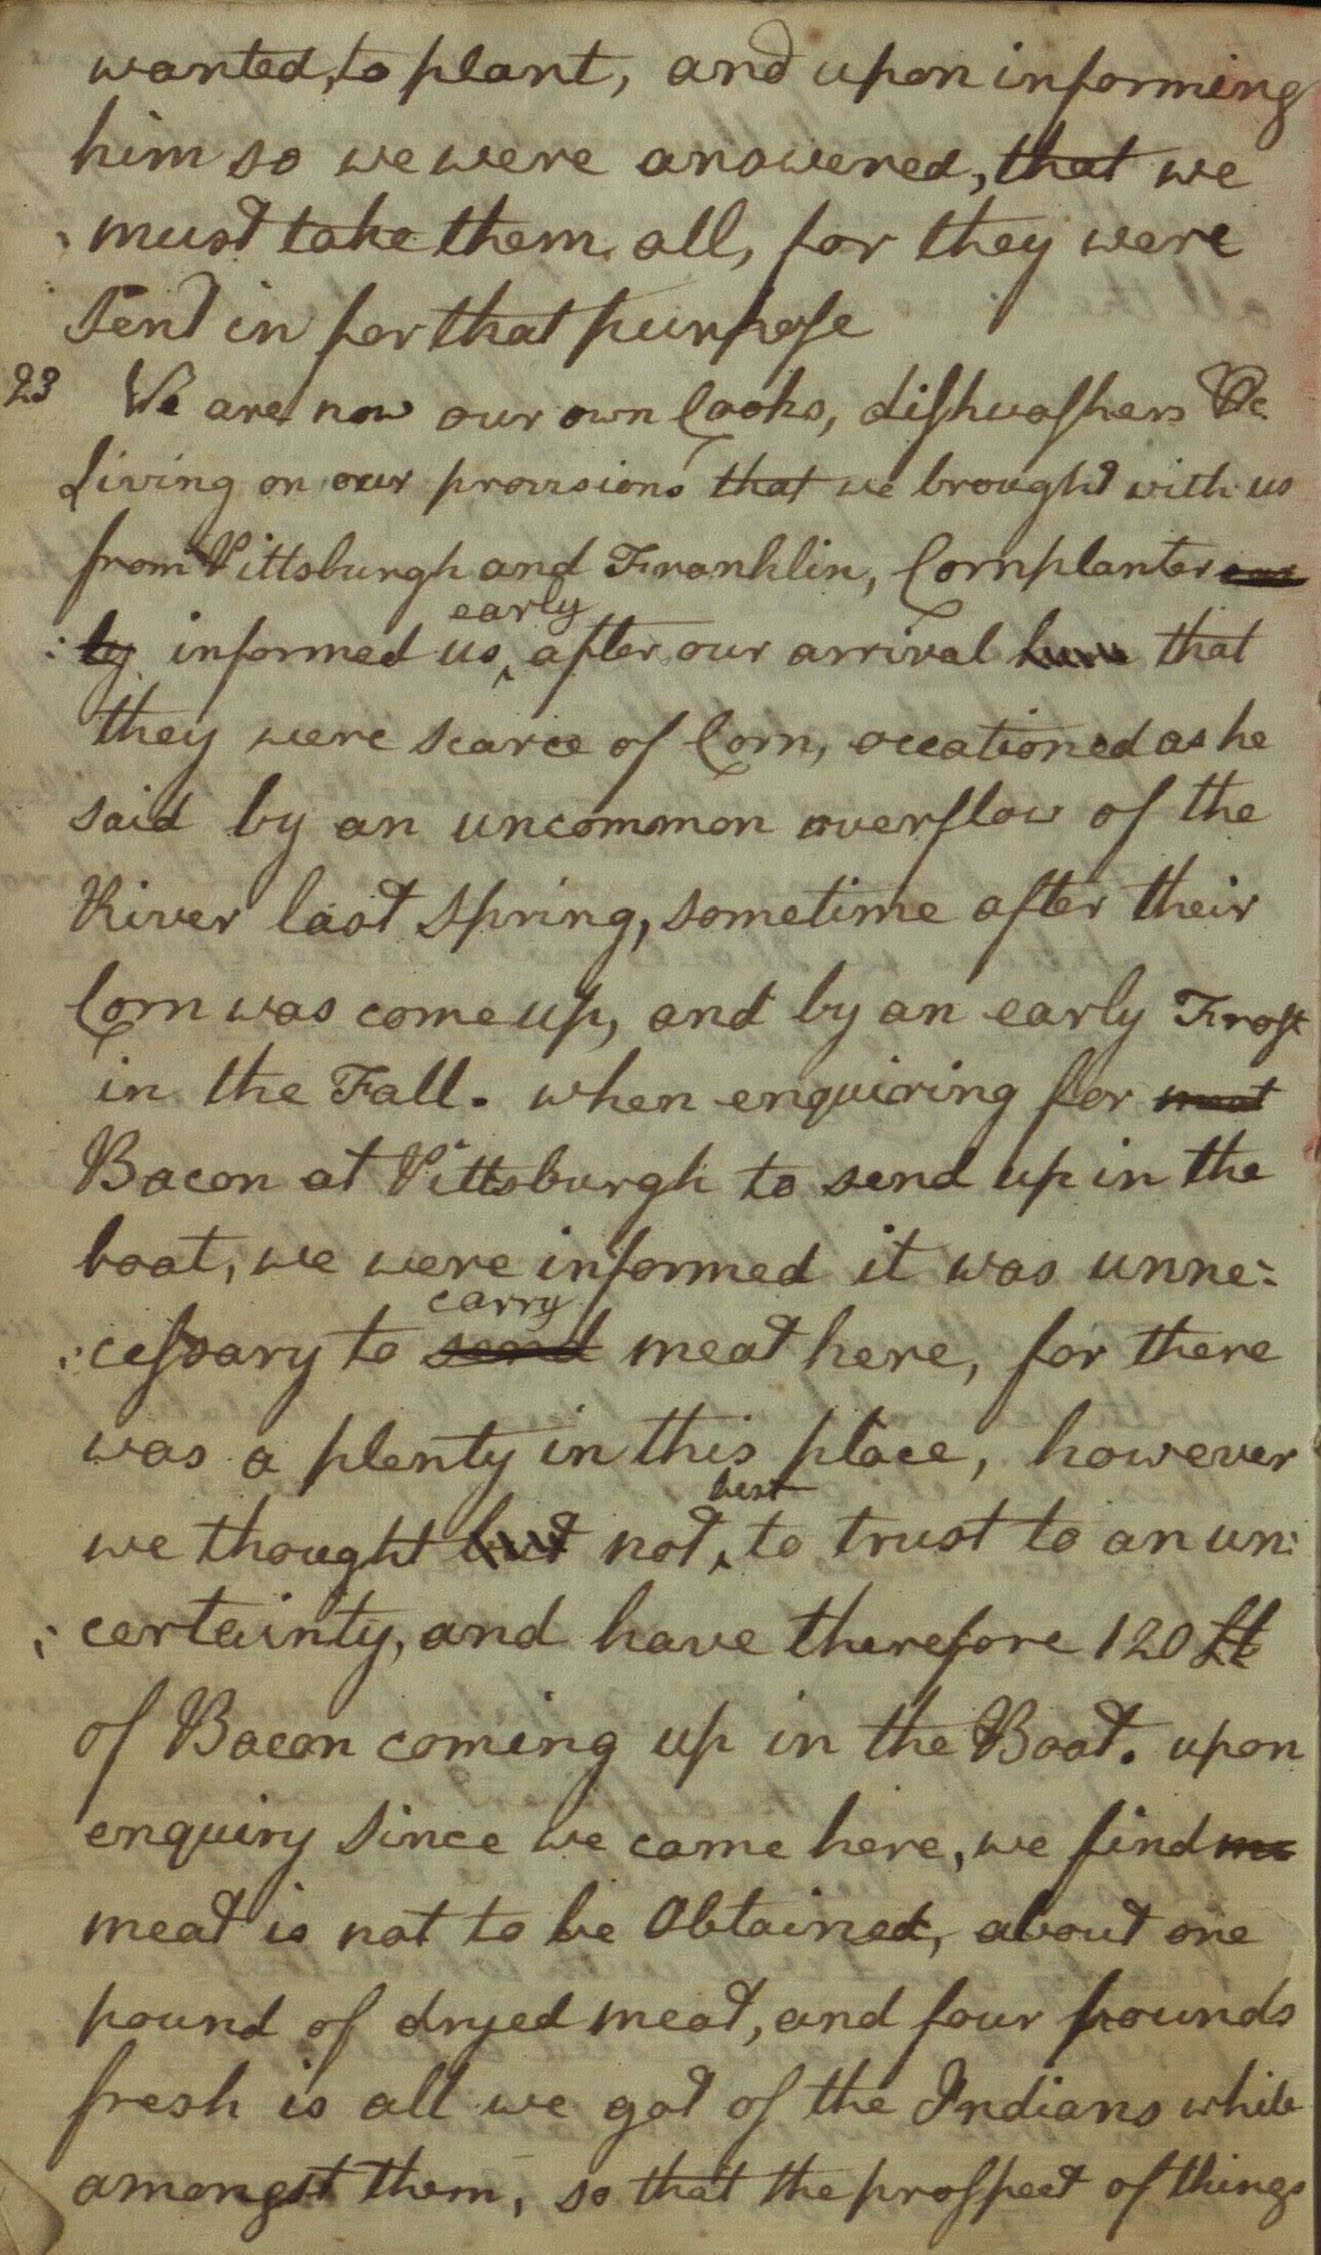 wanted, to plant, and upon informing
him so we were answered, that we
must take them all, for they were
Sent in for that purpose
23 We are now our own Cooks, dishwashers &c.
Living on our provisions that we brought with us
from Pittsburgh and Franklin, Cornplanter ear
early
:ly informed us, after our arrival here that
they were scarce of Corn, occationed as he
said by an uncommon overflow of the
River last Spring, sometime after their
Corn was come up, and by an early Frost
in the Fall. when enquiring for meat
Bacon at Pittsburgh to send up in the
boat, we were informed it was unne:
carry
:cessary to send meat here, for there
was a plenty in this place, however
best
we thought but not, to trust to an un:
:certainty, and have therefore 120 lb
of Bacon coming up in the Boat. upon
enquiry Since we came here, we find me
meat is not to be Obtained, about one
pound of dryed meat, and four pounds
fresh is all we got of the Indians while
amongst them, so that the prospect of things